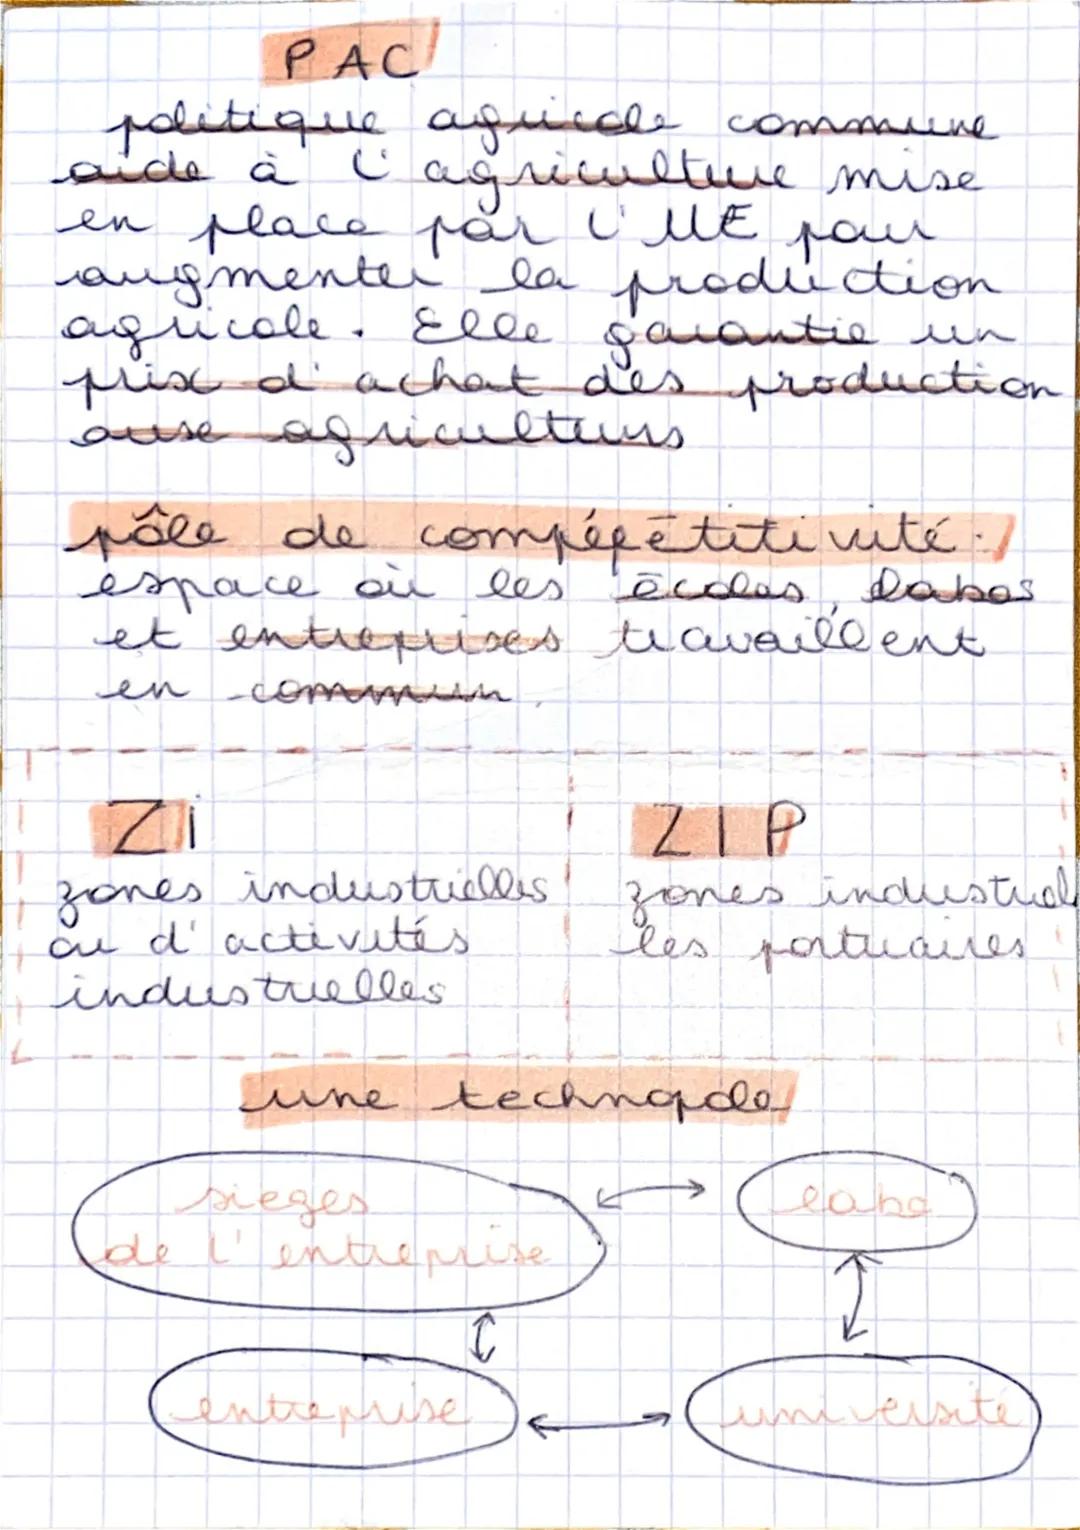 PAC
politique agricole commune
aide à l'agriculture mise
en place par l'UE pour
augmenter la production
agricole. Elle garantie un
prix d'achat des production
aux agriculteurs
pôle de compépétitivité :
espace où les écoles, labos
et entreprises travaillent
en commun.
Zi
zones industrielles
ou d'activités
industrielles
ZIP
zones industriel
les portuaires
une technopole
sieges
de l'entreprise
labo
entreprise
université